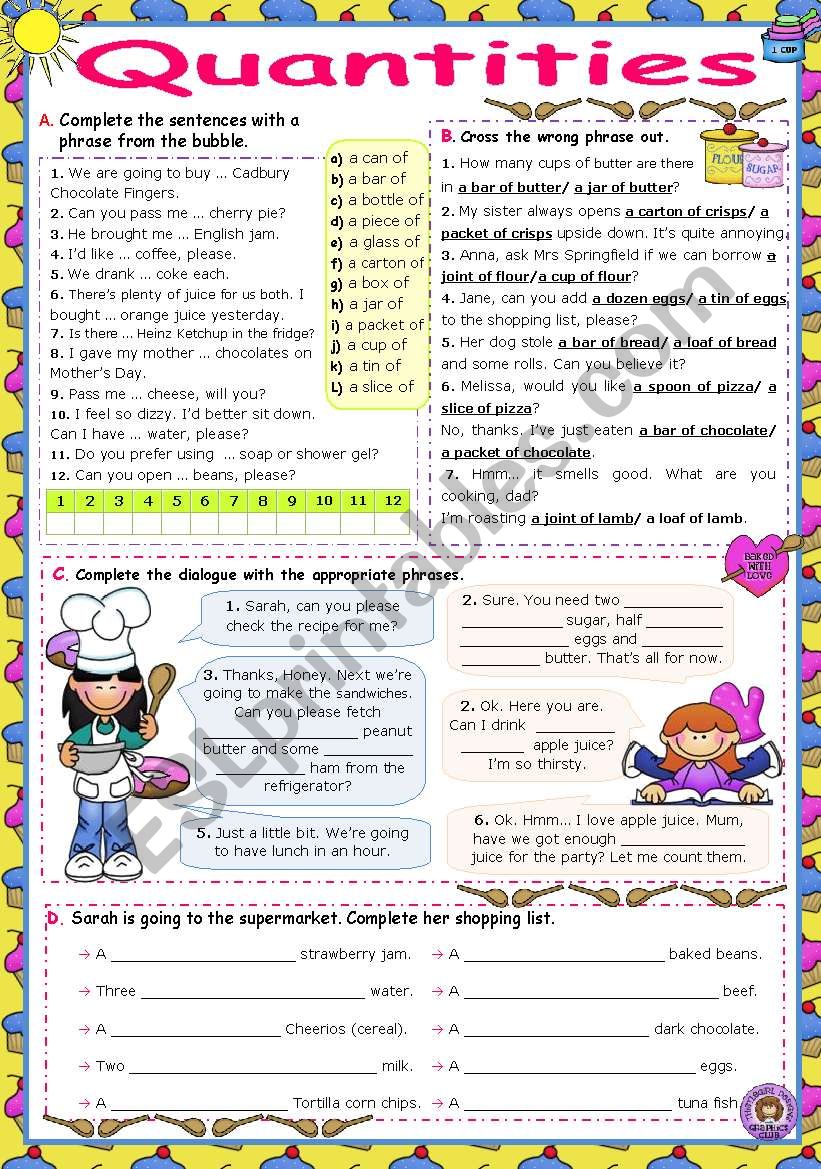 1 CUP
Quantities
A. Complete the sentences with a
phrase from the bubble.
1. We are going to buy ... Cadbury
Chocolate Fingers.
2. Can you pass me ... cherry pie?
3. He brought me ... English jam.
4. I'd like ... coffee, please.
5. We drank ... coke each.
6. There's plenty of juice for us both. I
bought ... orange juice yesterday.
7. Is there ... Heinz Ketchup in the fridge?
8. I gave my mother ... chocolates on
Mother's Day.
9. Pass me ... cheese, will you?
10. I feel so dizzy. I'd better sit down.
Can I have ... water, please?
11. Do you prefer using ... soap or shower gel?
12. Can you open ... beans, please?
a) a can of
b) a bar of
c) a bottle of
d) a piece of
e) a glass of
f) a carton of
g) a box of
h) a jar of
i) a packet of
j) a cup of
k) a tin of
L) a slice of
1 2 3 4 5 6 7 8 9 10 11 12
B. Cross the wrong phrase out.
FLOUR
SUGAR
1. How many cups of butter are there
in a bar of butter/ a jar of butter?
2. My sister always opens a carton of crisps/ a
packet of crisps upside down. It's quite annoying.
3. Anna, ask Mrs Springfield if we can borrow a
joint of flour/a cup of flour?
4. Jane, can you add a dozen eggs/ a tin of eggs
to the shopping list, please?
5. Her dog stole a bar of bread/ a loaf of bread
and some rolls. Can you believe it?
6. Melissa, would you like a spoon of pizza/ a
slice of pizza?
No, thanks. I've just eaten a bar of chocolate/
a packet of chocolate.
7. Hmm... it smells good. What are you
cooking, dad?
I'm roasting a joint of lamb/ a loaf of lamb.
BAKED
WITH
LOVE
C. Complete the dialogue with the appropriate phrases.
1. Sarah, can you please
check the recipe for me?
2. Sure. You need two ____________
____________ sugar, half _________
____________ eggs and ____________
_________ butter. That's all for now.
3. Thanks, Honey. Next we're
going to make the sandwiches.
Can you please fetch
__________________ peanut
butter and some ____________
___________ ham from the
refrigerator?
2. Ok. Here you are.
Can I drink _________
_______ apple juice?
I'm so thirsty.
5. Just a little bit. We're going
to have lunch in an hour.
6. Ok. Hmm... I love apple juice. Mum,
have we got enough ______________
juice for the party? Let me count them.
D. Sarah is going to the supermarket. Complete her shopping list.
→ A ______________________ strawberry jam.
→ A ________________________ baked beans.
→ Three ___________________________ water.
→ A ______________________________ beef.
→ A ____________________ Cheerios (cereal).
→ A ______________________ dark chocolate.
→ Two _____________________________ milk.
→ A ___________________________ eggs.
→ A _____________________ Tortilla corn chips.
→ A ________________________ tuna fish.
THISTLEGIRL DESIGNS
GRAPHICS
CLUB
ESLprintables.com